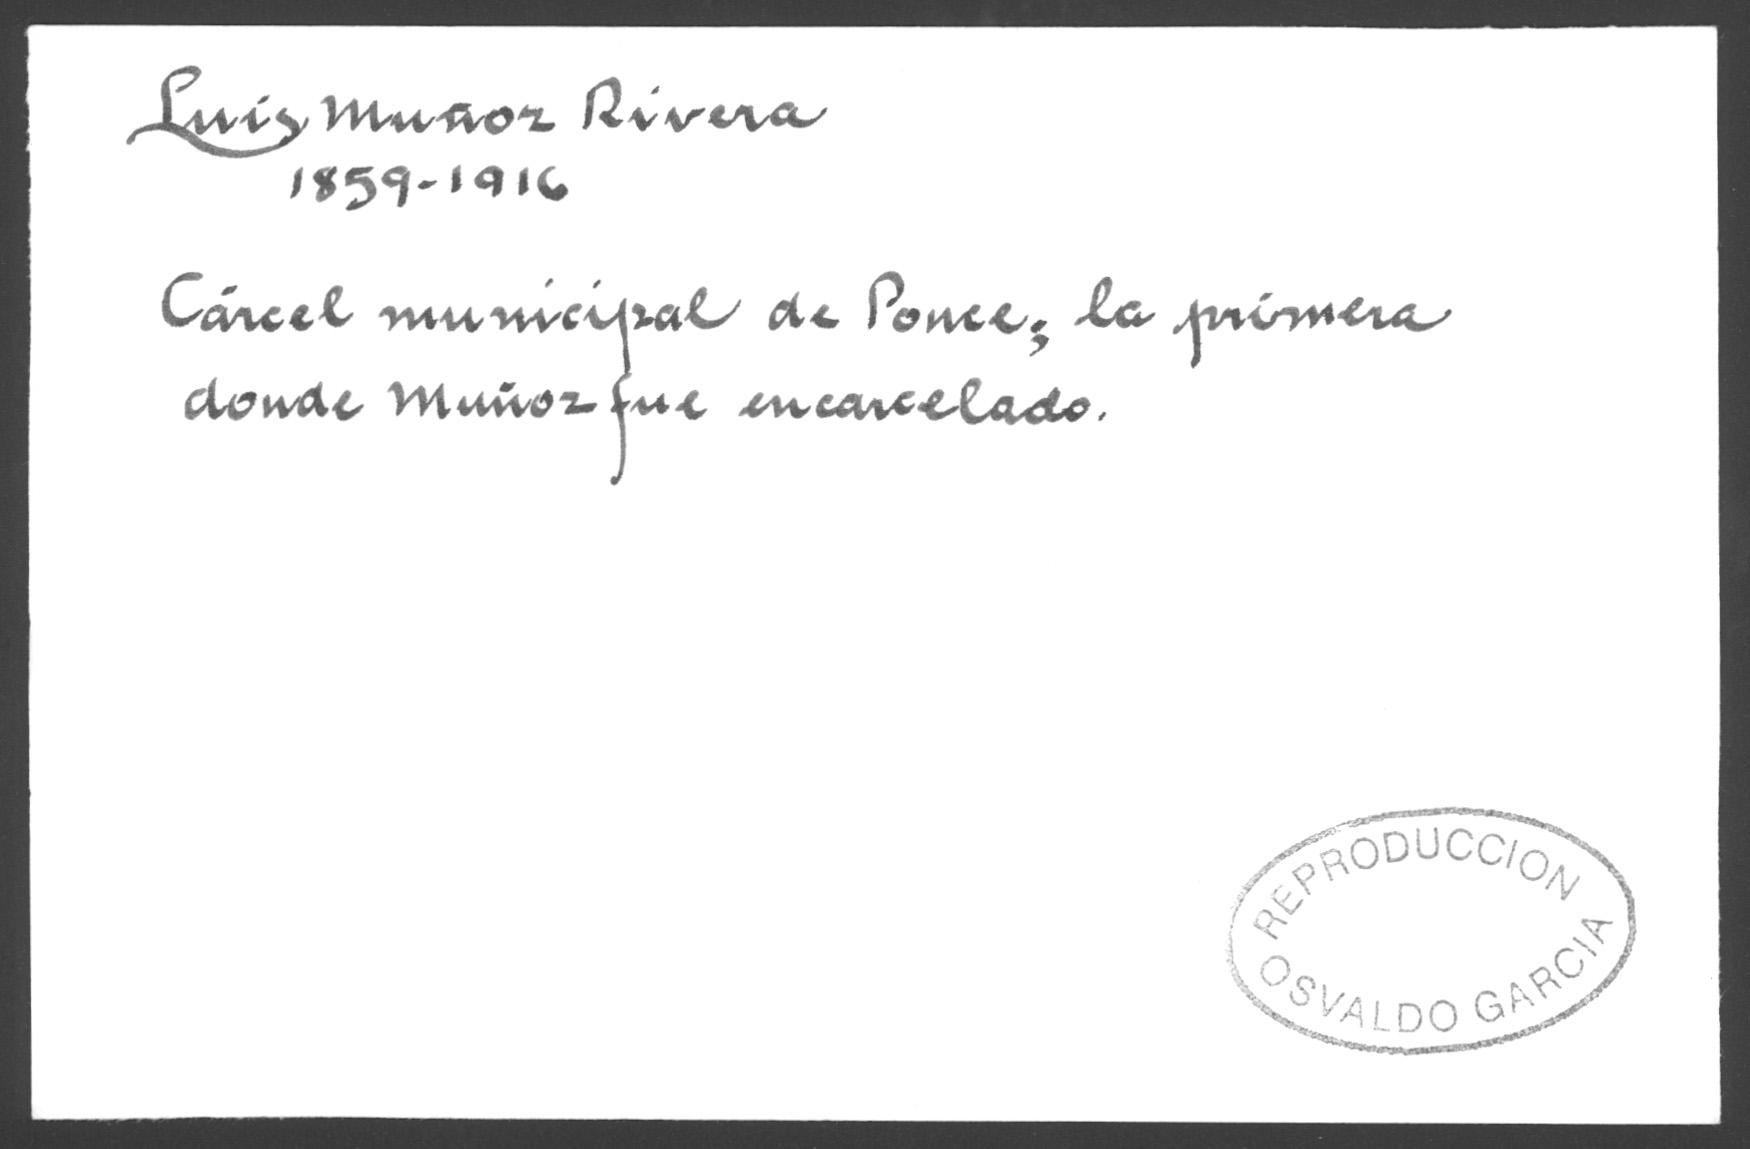 Luis Muñoz Rivera
1859-1916
Cárcel municipal de Ponce; la primera
donde Muñoz fue encarcelado.
REPRODUCCION
OSVALDO GARCIA